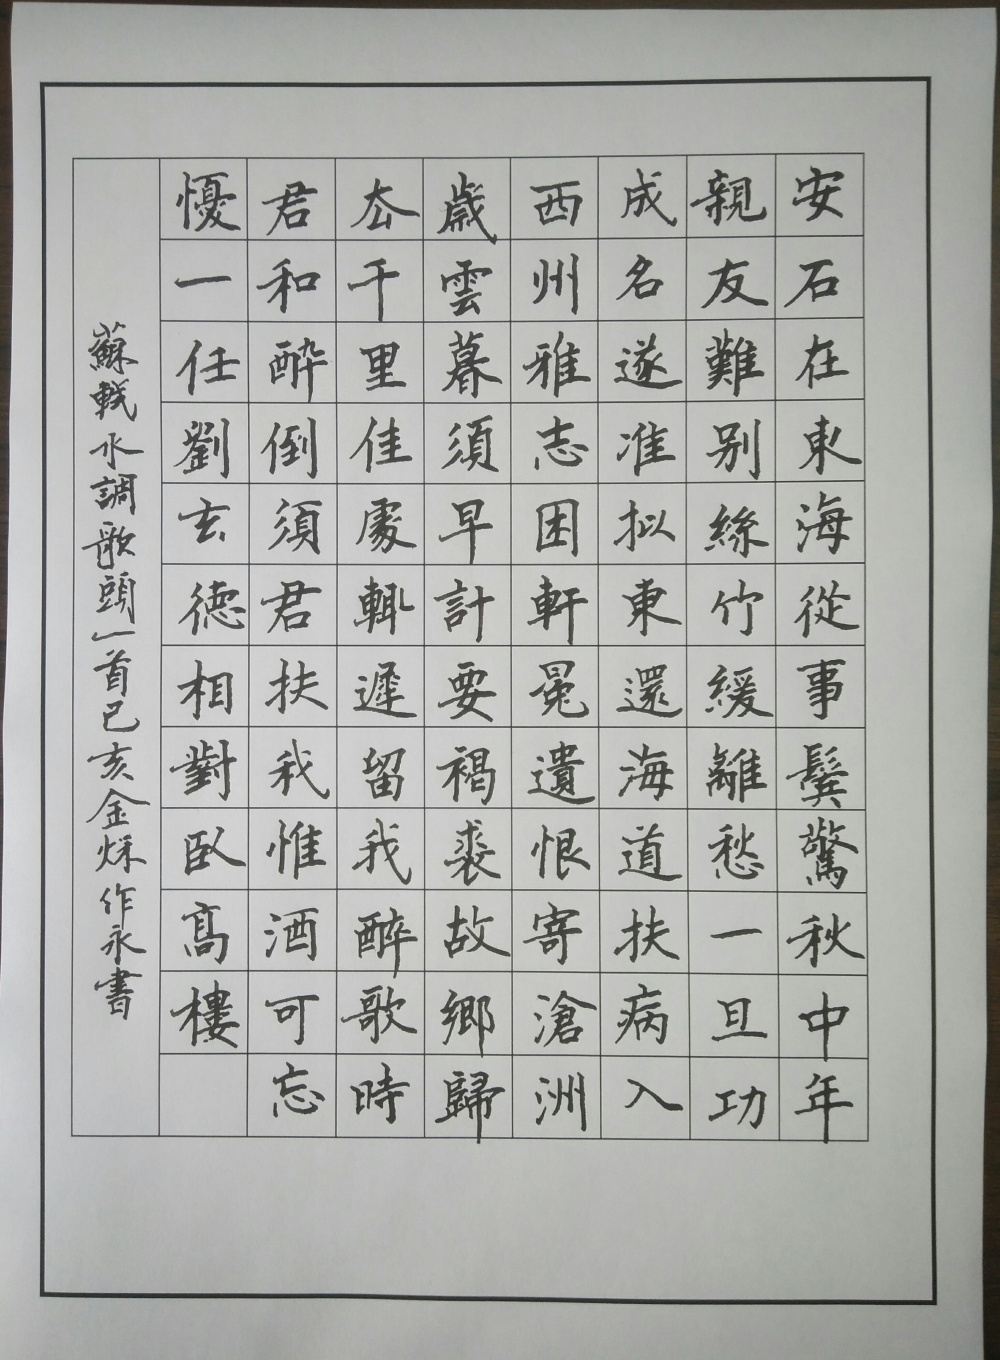 安石在東海從事鬢驚秋中年
親友難别絲竹緩離愁一旦功
成名遂准拟東還海道扶病入
西州雅志困軒冕遺恨寄滄洲
歲雲暮須早計要褐裘故鄉歸
去千里佳處輒遲留我醉歌時
君和醉倒須君扶我惟酒可忘
憂一任劉玄德相對臥高樓
蘇軾水調歌頭一首己亥金秌作永書